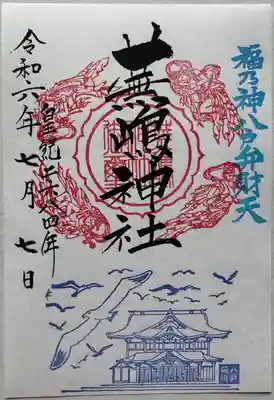 福乃神八戸弁財天
蕪嶋神社
皇紀二六八四年
令和六年七月七日